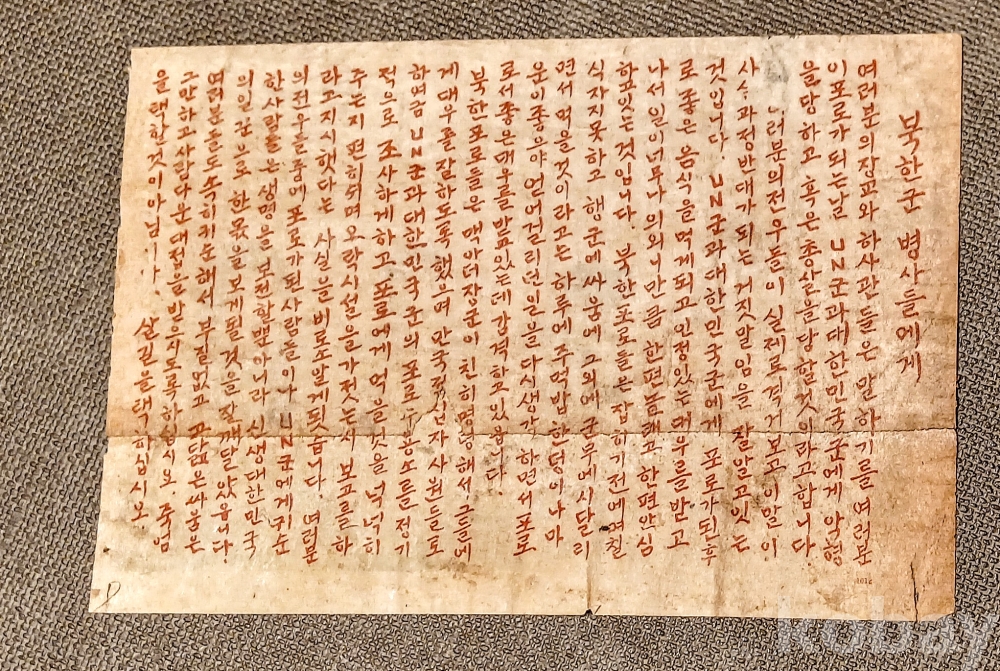 북한군 병사들에게
여러분의장교와 하사관들은 말하기를 여러분
이포로가 되는날 UN군과대한민국군에게 악형
을당하고 혹은총살을당할것이라고합니다
러분의전우들이 실제로격거보고 이말이
과정반대가 되는 거짓말임을 잘알고있는
것입니다. UN군과대한민국군에게 포로가된후
로좋은 음식을먹게되고 인정있는대우를받고
나서일이너무나의외니만큼 한편놀래고 한편안심
하고있는것입니다. 북한포로들은 잡히기전에며칠
식자지못하고 행군에싸움에 그외에 근무에시달리
면서먹을것이라고는 하루에주먹밥한덩이나마
운이좋을야 얻어걸리던일을다시생각하면서포로
로서좋은대우를받고있는데감격하고있읍니다.
북한포로들은 맥아더장군이 친히명령해서 그들에
게대우를잘하도록 했으며 만국적십자사원들로
하여금 UN군과대한민국군의 포로수용소를정기
적으로 조사하게하고 포로에게 먹을것을넉넉히
주는지 편히쉬며 오락시설을가젓는지 보고를하
라고지시햇다는 사실을비로소알게됫습니다. 여러분
의전우들중에포로가된사람들이나 UN군에게귀순
한사람들은생명을보전할뿐아니라 신생대한민국
의일꾼으로 한몫을보게될것을 잘깨달았읍니다.
여러분들도속히귀순해서 부질없고 고닯은싸움은
그만하고사람다운대접을받으시도록하십시오. 죽엄
을택할것이아닙니다. 살길을택하십시오
1012
kobay